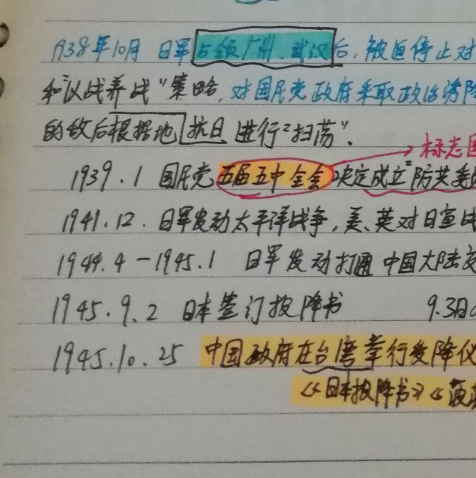 1938年10月 日军占领广州、武汉后，被迫停止对
和"以战养战"策略，对国民党政府采取政治诱降
的敌后根据地抗日进行"扫荡"。
标志国
1939.1 国民党五届五中全会决定成立"防共委
1941.12. 日军发动太平洋战争，美、英对日宣战
1944.4-1945.1 日军发动打通中国大陆交
1945.9.2 日本签订投降书 9.3日
1945.10.25 中国政府在台湾举行受降仪
《日本投降书》《